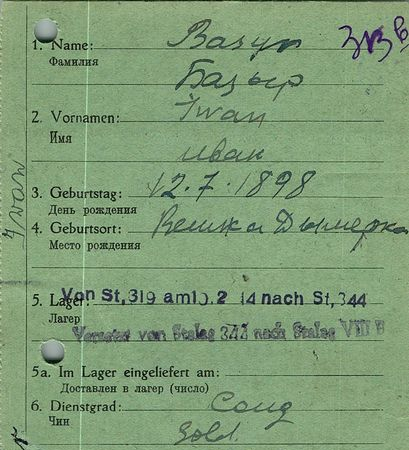 1. Name: Bazyr
Фамилия
Базыр
2. Vornamen: Iwan
Имя
иван
3. Geburtstag: 12.7.1898
День рождения
4. Geburtsort: Велика Дымерка
Место рождения
5. Lager: Von St, 319 am 10. 2 44 nach St, 344
Лагер
Versetzt von Stalag 344 nach Stalag VIII B
5a. Im Lager eingeliefert am:
Доставлен в лагер (число)
6. Dienstgrad: Солд
Чин
Sold.
Iwan